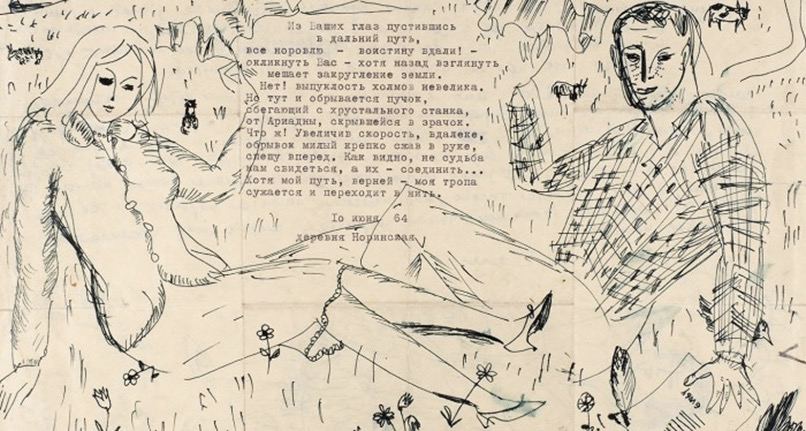 Из Ваших глаз пустившись
в дальний путь,
все норовлю - воистину вдали! -
окликнуть Вас - хотя назад взглянуть
мешает закругление земли.
Нет! выпуклость холмов невелика.
Но тут и обрывается пучок,
сбегающий с хрустального станка,
от Ариадны, скрывшейся в зрачок.
Что ж! Увеличив скорость, вдалеке,
обрывок милый крепко сжав в руке,
спешу вперед. Как видно, не судьба
нам свидеться, а их - соединить...
Хотя мой путь, верней - моя тропа
сужается и переходит в нить.
Iо июня 64
деревня Норинская